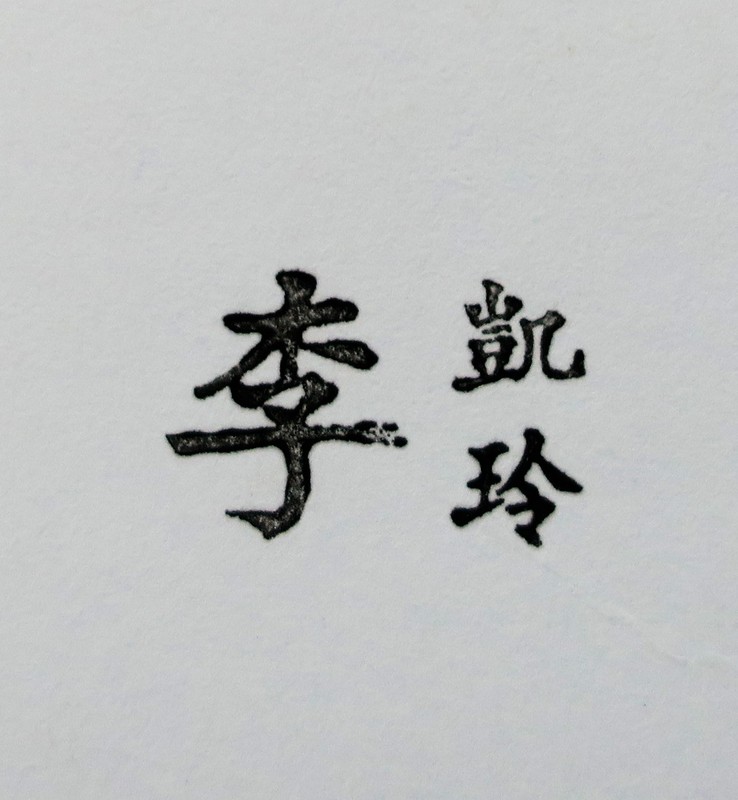 李
凱玲